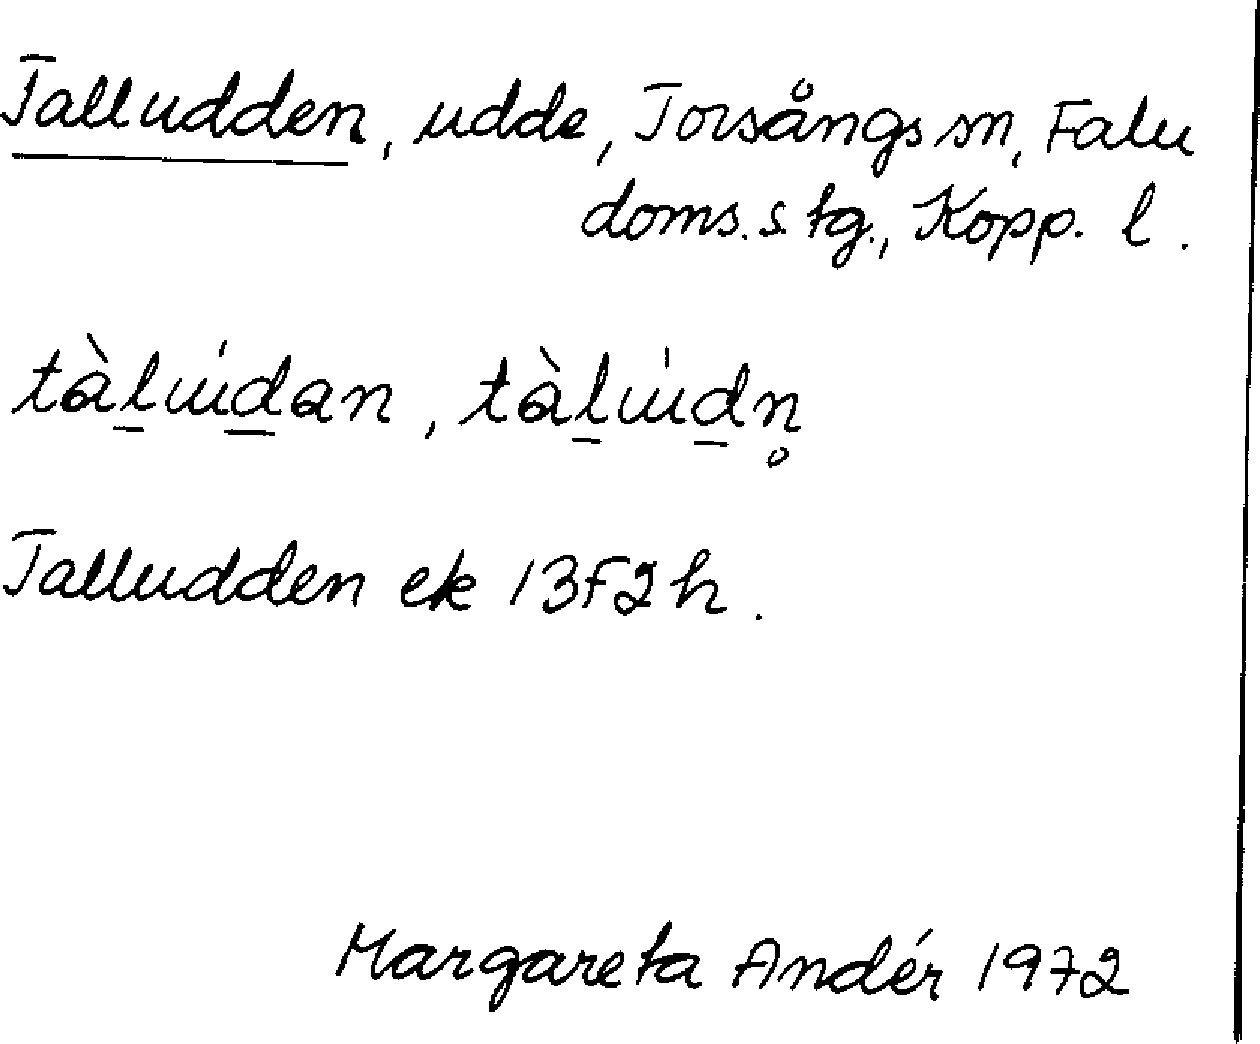 Talludden, udde, Torsångs sn, Falu
doms.s tg., Kopp. l.
tàl̲u̍d̲an, tàl̲u̍d̲n̥
Talludden ek 13F2h.
Margareta Andér 1972